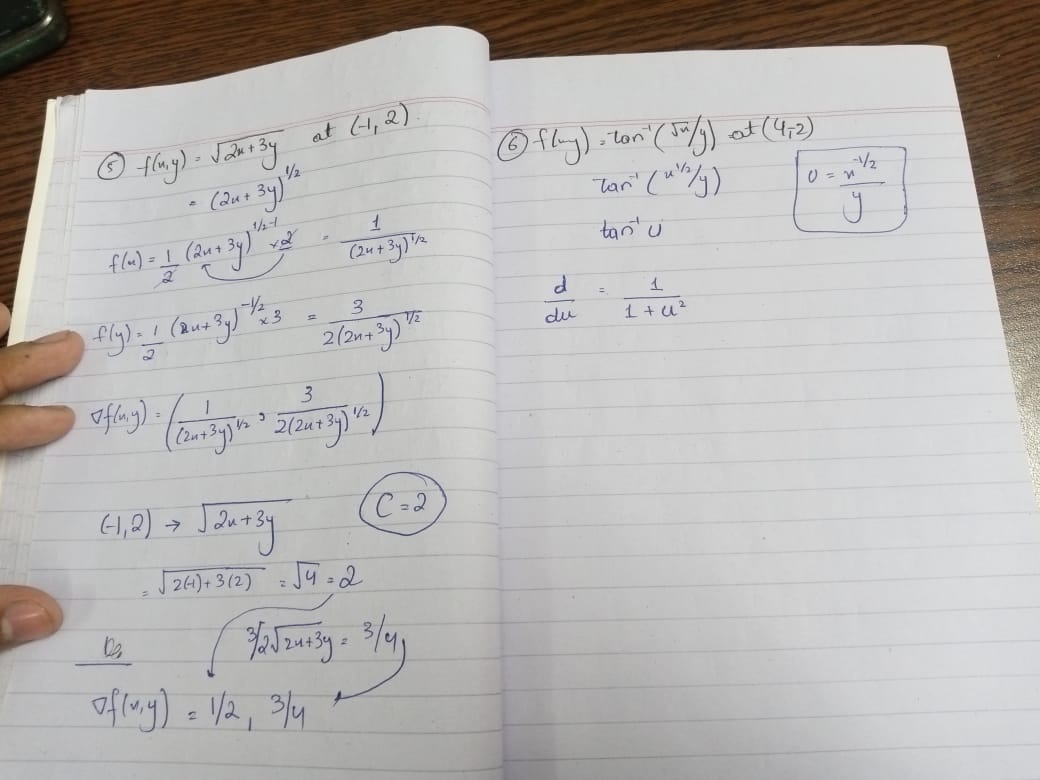 ⑤ f(x,y) = √2x+3y at (-1, 2).
= (2x+3y)^1/2
f(x) = 1/2 (2x+3y)^1/2-1 ×2 = 1/(2x+3y)^1/2
f(y) = 1/2 (2x+3y)^-1/2 ×3 = 3/2(2x+3y)^1/2
∇f(x,y) = (1/(2x+3y)^1/2 , 3/2(2x+3y)^1/2)
(-1,2) → √2x+3y
C=2
= √2(-1)+3(2) = √4 = 2
3/2√2x+3y = 3/4
∇f(x,y) = 1/2, 3/4
⑥ f(x,y) = tan^-1 (√x/y) at (4,-2)
tan^-1 (x^1/2/y)
U = x^-1/2/y
tan^-1 U
d/du = 1/1+u^2